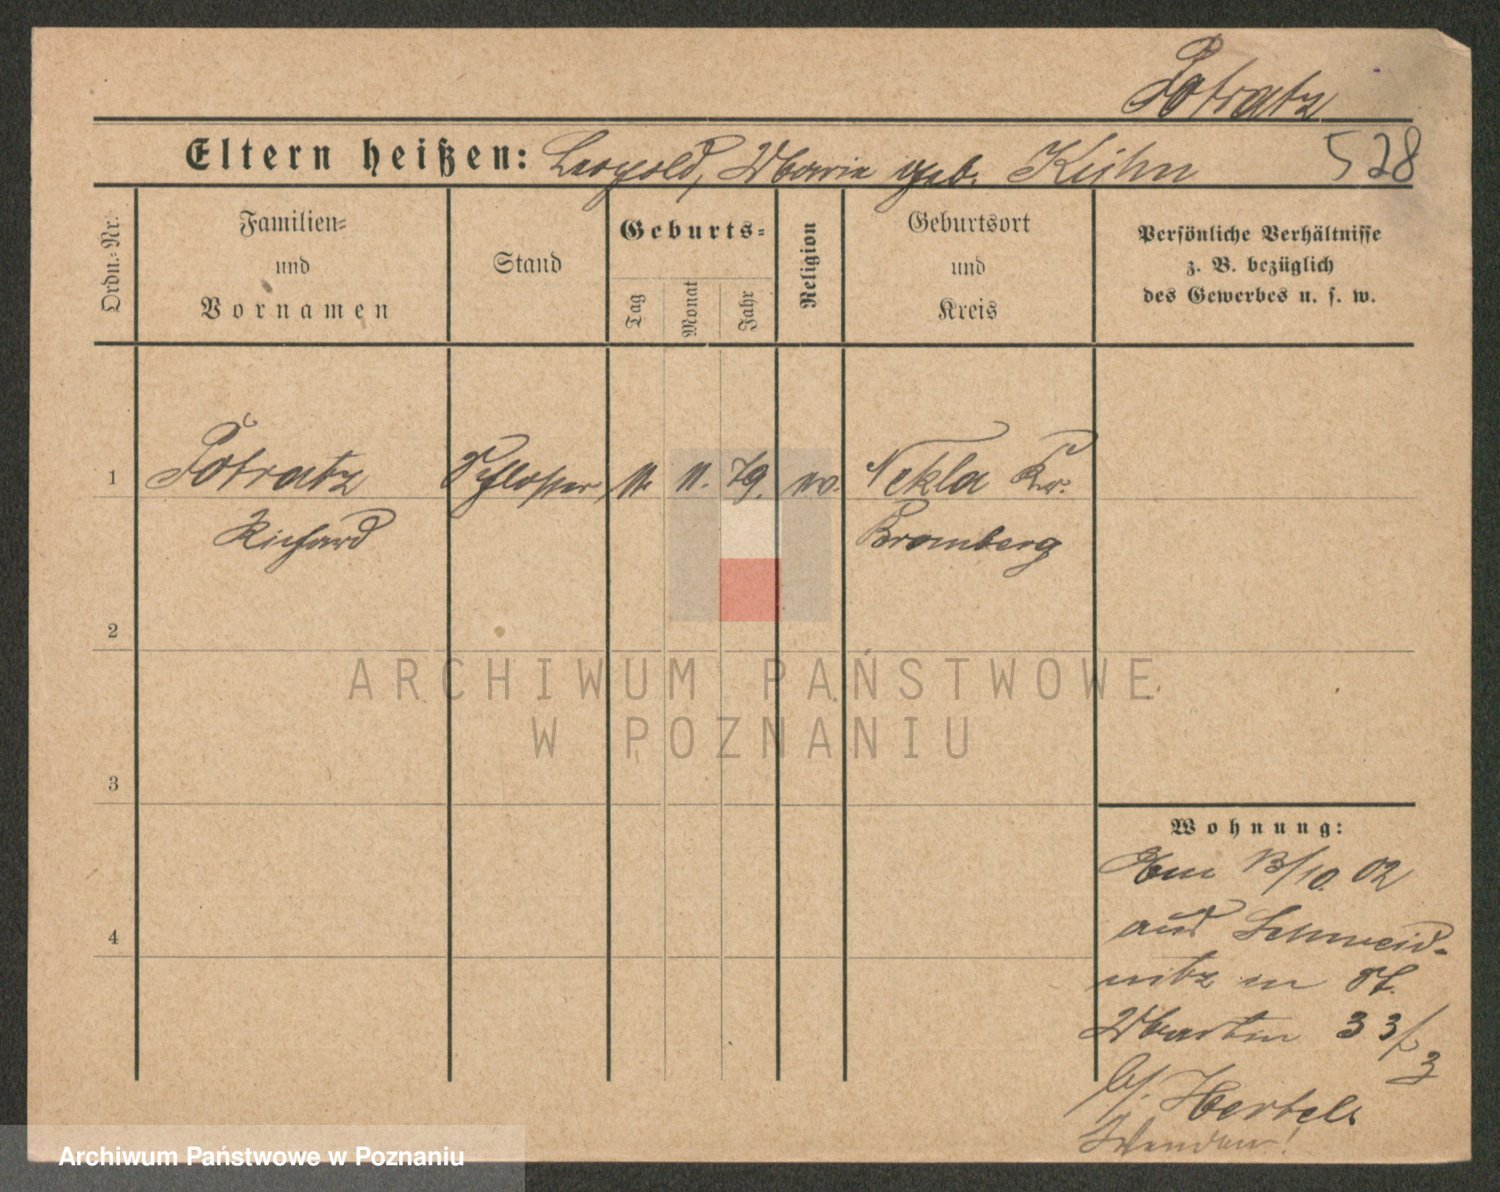 Potratz
Eltern heißen: Leopold, Maria geb. Kühn 528
Ordn.-Nr.
Familien-
und
Vornamen
Stand
Geburts-
Tag
Monat
Jahr
Religion
Geburtsort
und
Kreis
Persönliche Verhältnisse
z. B. bezüglich
des Gewerbes u. s. w.
1 Potratz Schlosser 11. 79. Nekla Kr.
Richard Bromberg
2
ARCHIWUM PAŃSTWOWE
W POZNANIU
3
Wohnung:
13/10. 02
aus Schweid-
nitz in St.
4
Martin 33/
3
b/. Hertel
Wenden!
Archiwum Państwowe w Poznaniu